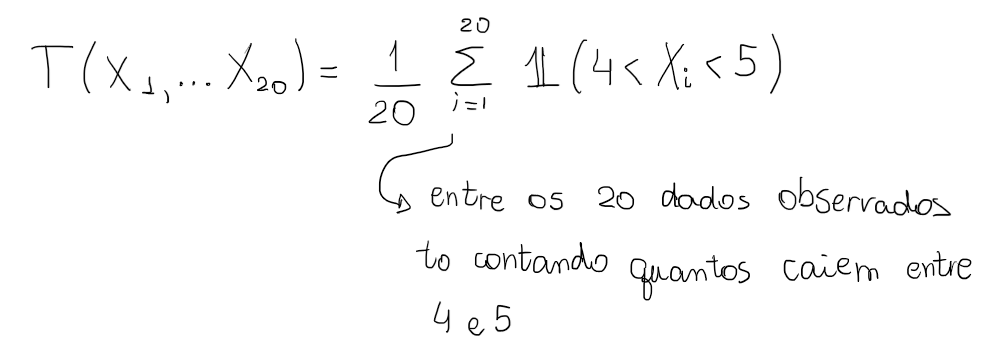 T(X₁,... X₂₀) = 1/20 ∑_{i=1}^{20} 𝟙(4 < Xᵢ < 5)
entre os 20 dados observados
to contando quantos caiem entre
4 e 5